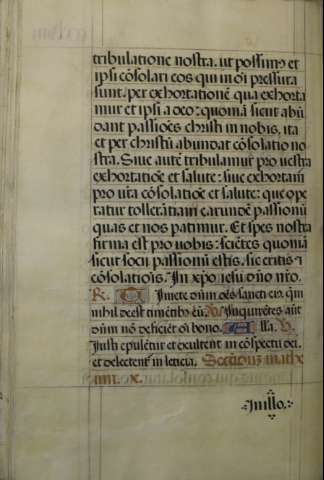 tribulatione nostra. ut possim9 et
ipsi cōsolari eos qui in oī pressura
sunt. per exhortationē qua exhorta
mur et ipsi a deo: quoniā sicut abū
dant passiōes christi in nobis, ita
et per christū abundat cōsolatio no
stra. Siue autē tribulamur pro uestra
exhortatiōe et salute: siue exhortam̄
pro ur̄a cōsolatiōe et salute: que ope
ratur tollerātiam earundē passionū
quas et nos patimur. Et spes nostra
firma est pro uobis: sciētes quoniā
sicut socii passionū estis. sic eritis ⁊
cōsolatiōis. In xp̄o iesu dn̄o nr̄o.
R. Timete dn̄m oēs sancti ei9. qm̄
nihil deest timētib9 eū. V. Inquirētes aūt
dūm nō deficiēt oī bono. Alla. V.
Iusti epulētur et exultent in cōspectu dei
et delectent̄ in leticia.
IIII. X.
In illo.